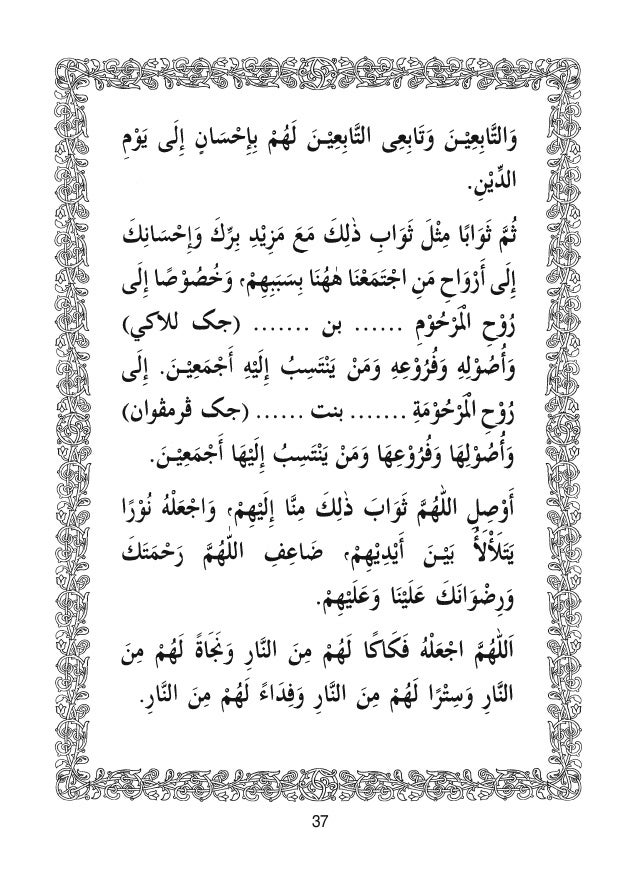 وَالتَّابِعِيْنَ وَتَابِعِى التَّابِعِيْنَ لَهُمْ بِإِحْسَانٍ إِلَى يَوْمِ
الدِّيْنِ.
ثُمَّ ثَوَابًا مِثْلَ ثَوَابِ ذٰلِكَ مَعَ مَزِيْدِ بِرِّكَ وَإِحْسَانِكَ
إِلَى أَرْوَاحِ مَنِ اجْتَمَعْنَا هٰهُنَا بِسَبَبِهِمْ، وَخُصُوْصًا إِلَى
رُوْحِ الْمَرْحُوْمِ ...... بن ....... (جک للاكي)
وَأُصُوْلِهِ وَفُرُوْعِهِ وَمَنْ يَنْتَسِبُ إِلَيْهِ أَجْمَعِيْنَ. إِلَى
رُوْحِ الْمَرْحُوْمَةِ ....... بنت ...... (جک ڤرمڤوان)
وَأُصُوْلِهَا وَفُرُوْعِهَا وَمَنْ يَنْتَسِبُ إِلَيْهَا أَجْمَعِيْنَ.
أَوْصِلِ اللّٰهُمَّ ثَوَابَ ذٰلِكَ مِنَّا إِلَيْهِمْ، وَاجْعَلْهُ نُوْرًا
يَتَلَأْلَأُ بَيْنَ أَيْدِيْهِمْ، ضَاعِفِ اللّٰهُمَّ رَحْمَتَكَ
وَرِضْوَانَكَ عَلَيْنَا وَعَلَيْهِمْ.
اَللّٰهُمَّ اجْعَلْهُ فَكَاكًا لَهُمْ مِنَ النَّارِ وَنَجَاةً لَهُمْ مِنَ
النَّارِ وَسِتْرًا لَهُمْ مِنَ النَّارِ وَفِدَاءً لَهُمْ مِنَ النَّارِ.
37